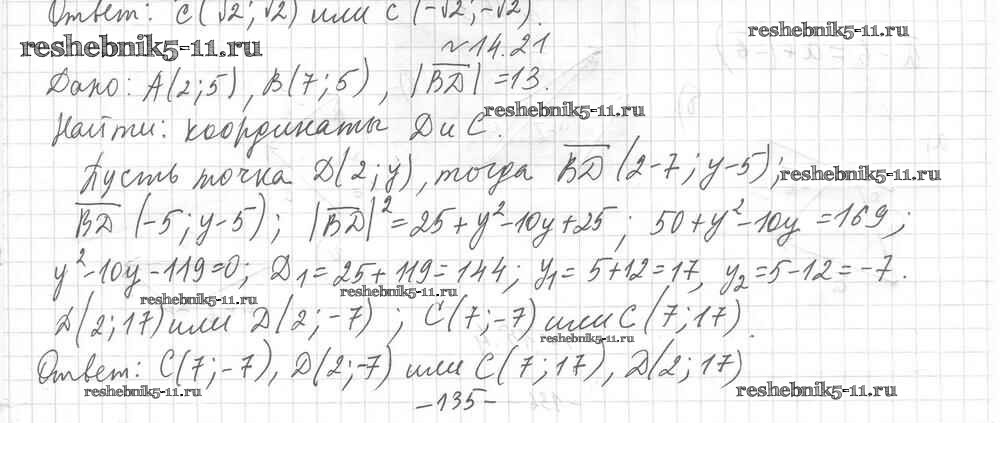 Ответ: C(√2; √2) или C(-√2; -√2).
reshebnik5-11.ru
reshebnik5-11.ru
№14.21
Дано: A(2; 5), B(7; 5), |BD| = 13.
reshebnik5-11.ru
Найти: координаты D и C.
Пусть точка D(2; y), тогда BD (2-7; y-5);
reshebnik5-11.ru
BD (-5; y-5); |BD|² = 25+y²-10y+25; 50+y²-10y = 169;
y²-10y-119=0; D₁ = 25+119=144; y₁ = 5+12=17, y₂=5-12=-7.
reshebnik5-11.ru
reshebnik5-11.ru
D(2; 17) или D(2; -7); C(7; -7) или C(7; 17).
reshebnik5-11.ru
Ответ: C(7; -7), D(2; -7) или C(7; 17), D(2; 17)
reshebnik5-11.ru
reshebnik5-11.ru
-135-